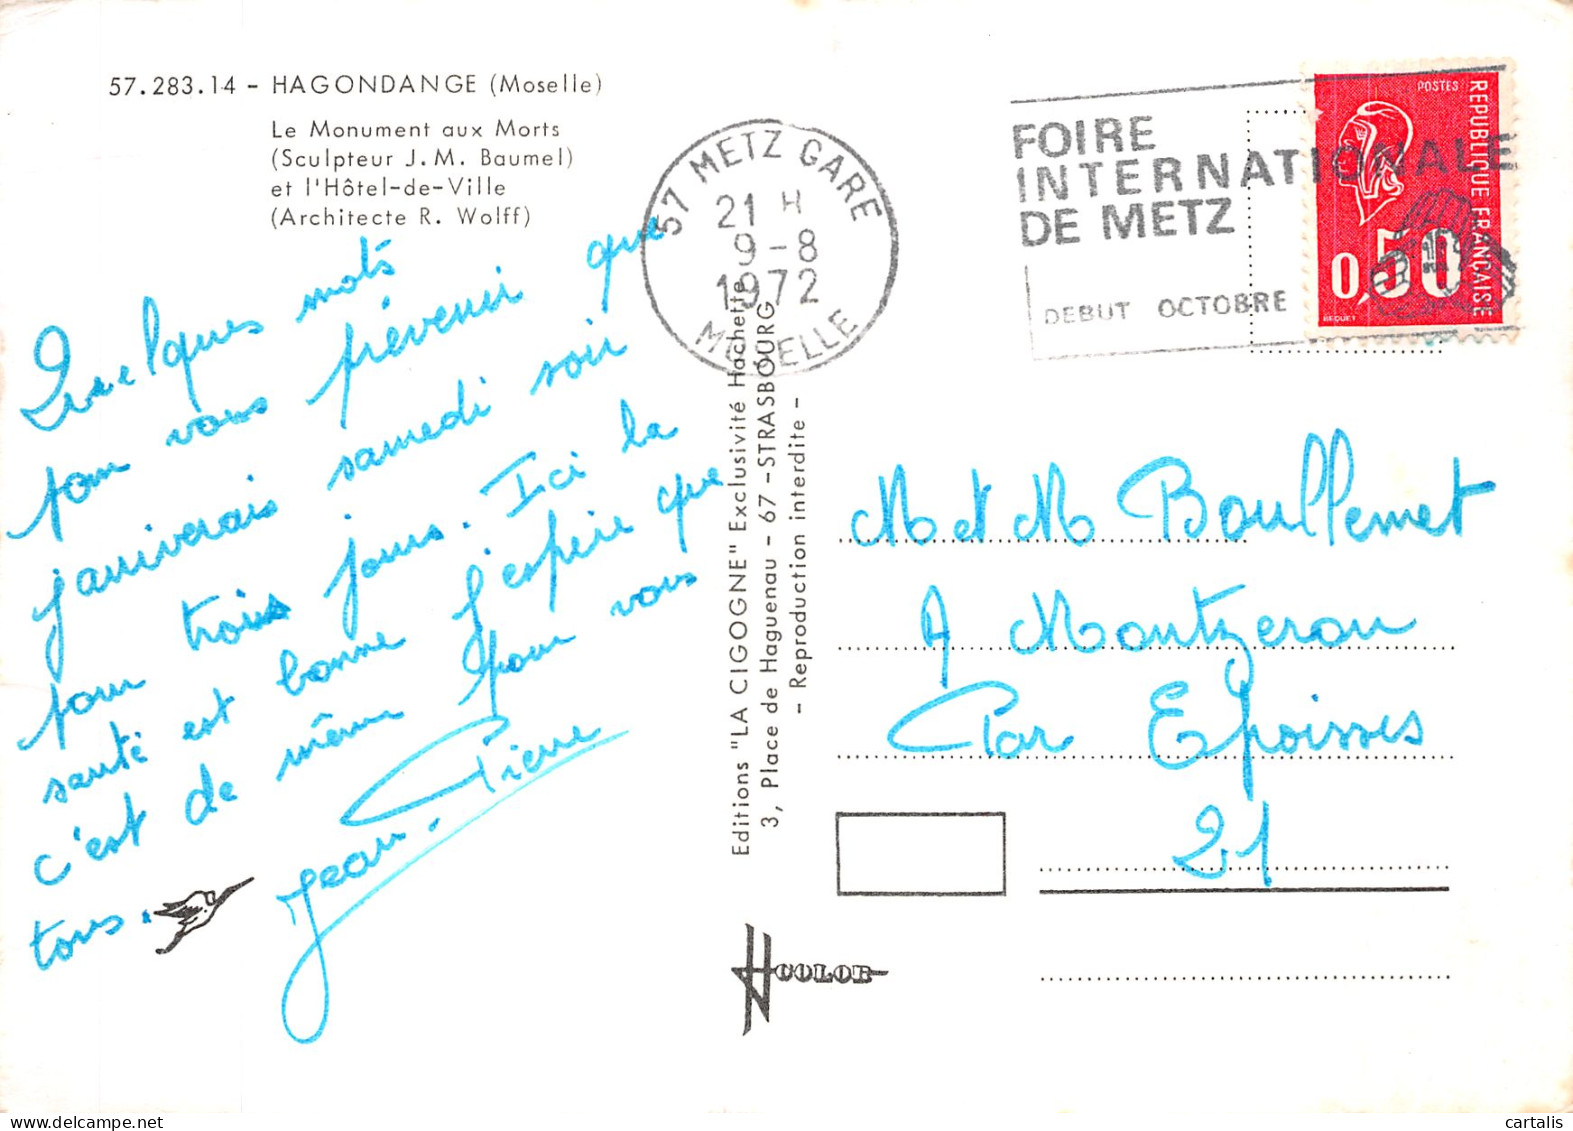 57.283.14 - HAGONDANGE (Moselle)
Le Monument aux Morts
(Sculpteur J. M. Baumel)
et l'Hôtel-de-Ville
(Architecte R. Wolff)
Quelques mots
pour vous prévenir que
j'arriverais samedi soir
pour trois jours. Ici la
santé est bonne j'espère que
c'est de même pour vous
tous.
Jean-Pierre
57 METZ GARE
21 H
9-8
1972
MOSELLE
FOIRE
INTERNATIONALE
DE METZ
DEBUT OCTOBRE
POSTES
REPUBLIQUE FRANÇAISE
0,50
BEQUET
Editions "LA CIGOGNE" Exclusivité Hachette
3, Place de Haguenau - 67 - STRASBOURG
- Reproduction interdite -
M et M Boullemet
A Montzeron
Par Epoisses
21
COLOR
cartalis.com